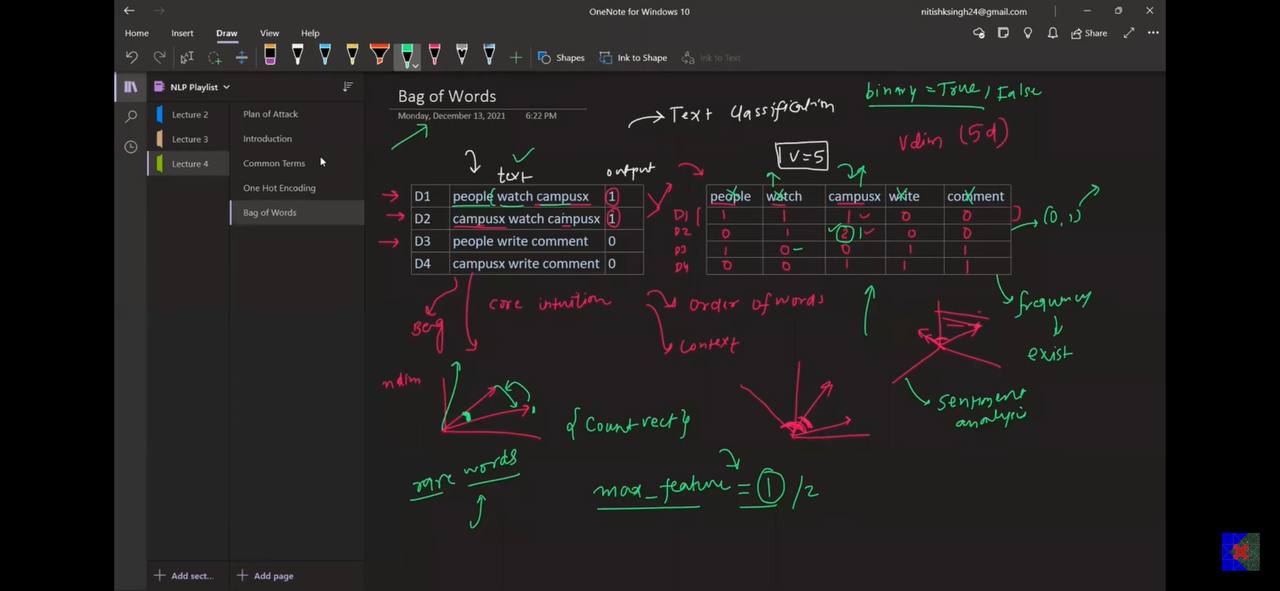 OneNote for Windows 10
nitishksingh24@gmail.com
Home Insert Draw View Help
Share
Shapes Ink to Shape Ink to Text
NLP Playlist
Lecture 2
Lecture 3
Lecture 4
Plan of Attack
Introduction
Common Terms
One Hot Encoding
Bag of Words
Add sect...
Add page
Bag of Words
Monday, December 13, 2021 6:22 PM
Text classification
binary = True, False
Vdim (5d)
V = 5
text output
D1 people watch campusx 1
D2 campusx watch campusx 1
D3 people write comment 0
D4 campusx write comment 0
people watch campusx write comment
D1 1 1 1 0 0
D2 0 1 2 1 0 0
D3 1 0 0 1 1
D4 0 0 1 1 1
(0, 1)
core intuition
order of words
context
frequency
exist
sentiment
analysis
ndim
{Countvect}
rare words
max_feature = 1 /2